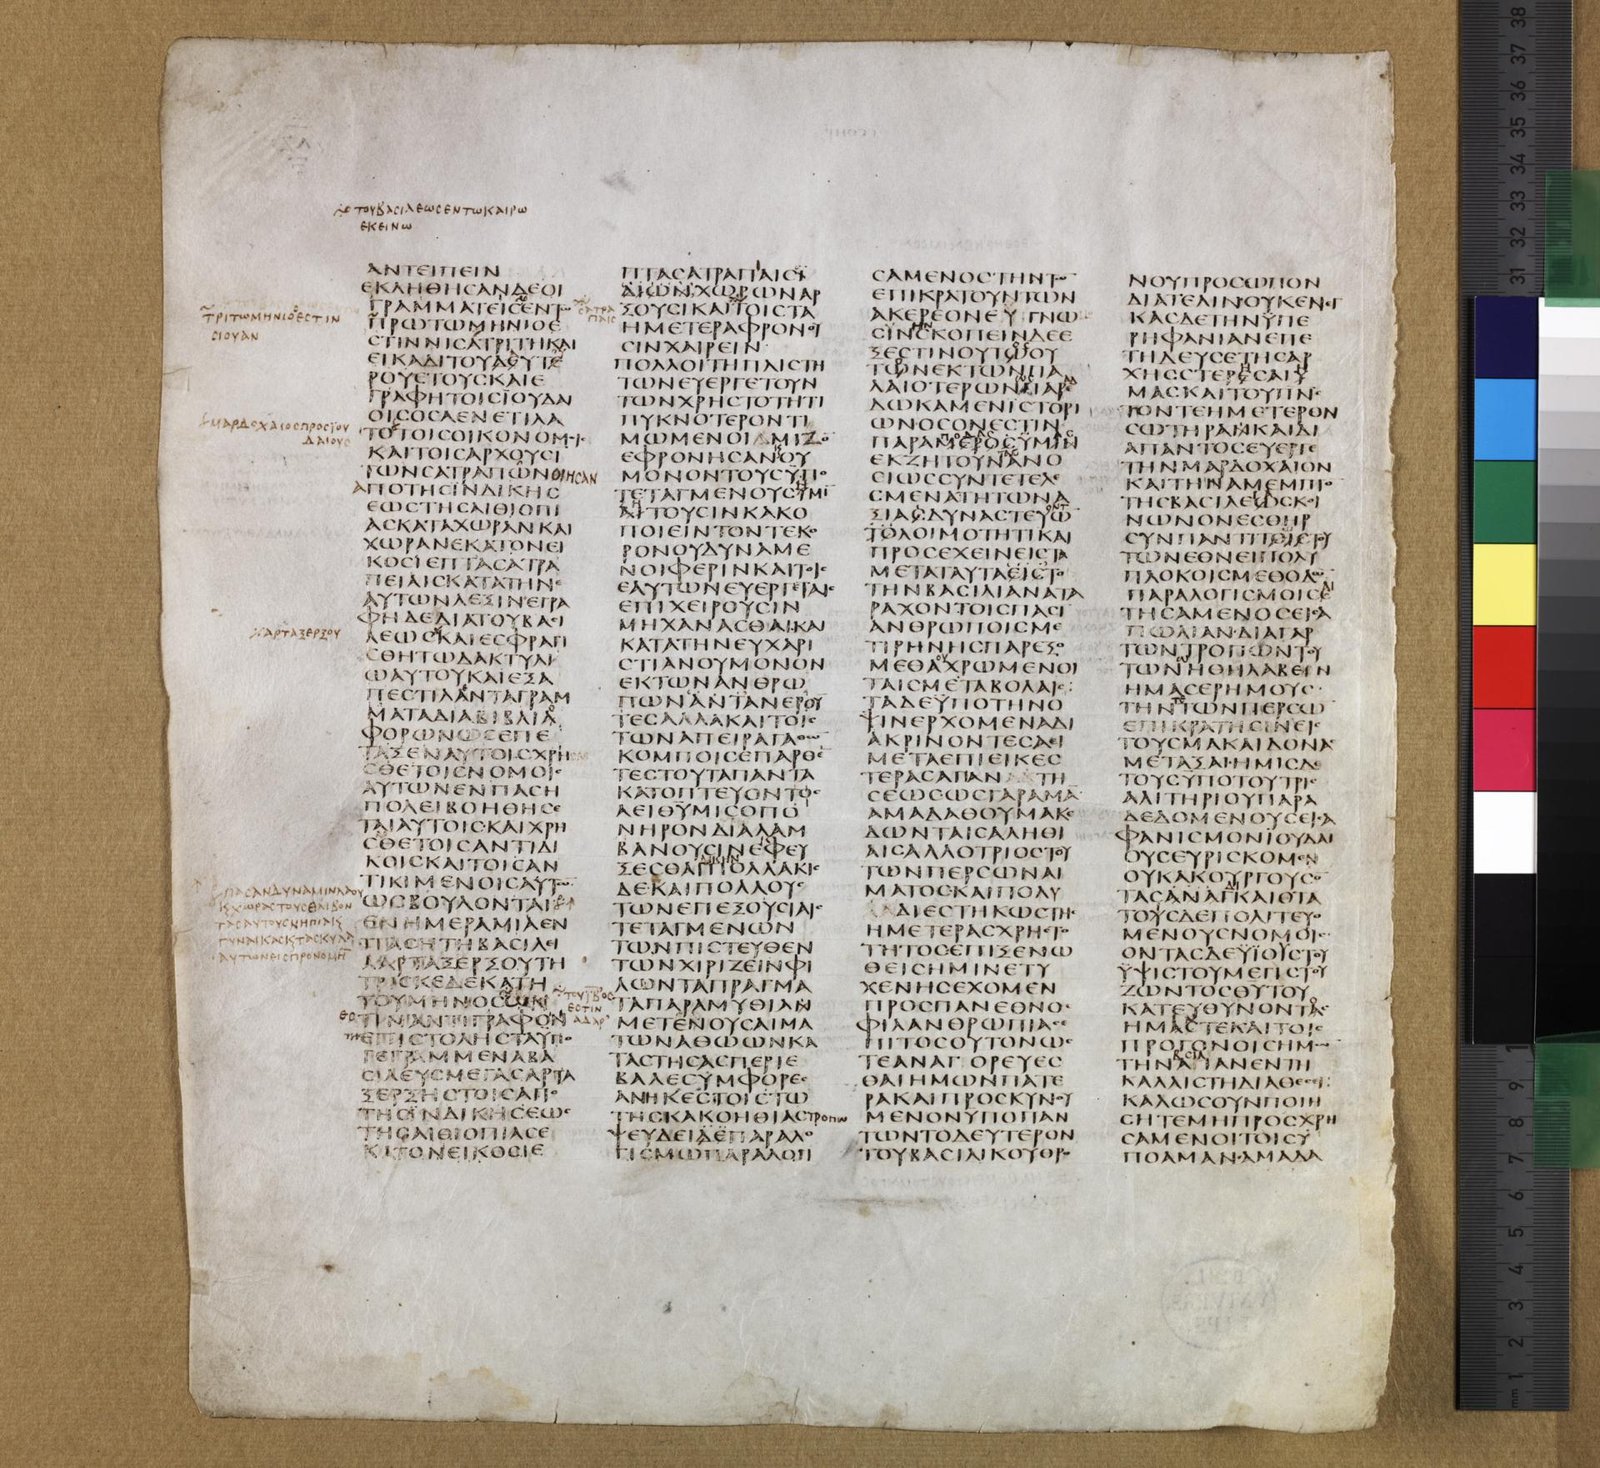 ΤΟΥΒΑϹΙΛΕΩϹΕΝΤΩΚΑΙΡΩ
ΕΚΕΙΝΩ
ΤΡΙΤΩΜΗΝΙΟϹΕϹΤΙΝ
ϹΙΟΥΑΝ
ΜΑΡΔΟΧΑΙΟϹΠΡΟϹΤΟΥ
ΔΑΙΟΥϹ
ΑΡΤΑΞΕΡΞΟΥ
ΑΝΤΕΙΠΕΙΝ
ΕΚΛΗΘΗϹΑΝΔΕΟΙ
ΓΡΑΜΜΑΤΕΙϹΕΝΤΩ
ΠΡΩΤΩΜΗΝΙΟϹΕ
ϹΤΙΝΝΙϹΑΤΡΙΤΗΚΑΙ
ΡΟΥΕΤΟΥϹΚΑΙΕ
ΓΡΑΦΗΤΟΙϹΙΟΥΔΑΙ
ΟΙϹΟϹΑΕΝΕΤΙΛΑ
ΤΟΤΟΙϹΟΙΚΟΝΟΜΟΙ
ΚΑΙΤΟΙϹΑΡΧΟΥϹΙ
ΤΩΝϹΑΤΡΑΠΩΝ
ΑΠΟΤΗϹΙΝΔΙΚΗϹ
ΕΩϹΤΗϹΑΙΘΙΟΠΙ
ΑϹΚΑΤΑΧΩΡΑΝΚΑΙ
ΧΩΡΑΝΕΚΑΤΟΝΕΙ
ΚΟϹΙΕΠΤΑϹΑΤΡΑ
ΠΕΙΑΙϹΚΑΤΑΤΗΝΕ
ΑΥΤΩΝΛΕΞΙΝΕΓΡΑ
ΦΗΔΕΔΙΑΤΟΥΒΑϹΙ
ΛΕΩϹΚΑΙΕϹΦΡΑΓΙ
ϹΘΗΤΩΔΑΚΤΥΛΙ
ΩΑΥΤΟΥΚΑΙΕΞΑ
ΠΕϹΤΙΛΑΝΤΑΓΡΑΜ
ΜΑΤΑΔΙΑΒΙΒΛΙΑ
ΦΟΡΩΝΩϹΕΠΕ
ΤΑΞΕΝΑΥΤΟΙϹΧΡΗ
ϹΘΕΤΟΙϹΝΟΜΟΙϹ
ΑΥΤΩΝΕΝΠΑϹΗ
ΠΟΛΕΙΒΟΗΘΗϹΕ
ΤΑΙΑΥΤΟΙϹΚΑΙΧΡΗ
ϹΘΕΤΟΙϹΑΝΤΙΔΙ
ΚΟΙϹΚΑΙΤΟΙϹΑΝ
ΤΙΚΙΜΕΝΟΙϹΑΥΤΩ
ΩϹΒΟΥΛΟΝΤΑΙ
ΕΝΗΜΕΡΑΜΙΑΕΝ
ΠΑϹΗΤΗΒΑϹΙΛΕΙ
ΑΑΡΤΑΞΕΡΞΟΥΤΗ
ΤΡΙϹΚΕΔΕΚΑΤΗ
ΕΠΙϹΤΟΛΗϹΤΑΥΠΟ
ΓΕΓΡΑΜΜΕΝΑΒΑ
ϹΙΛΕΥϹΜΕΓΑϹΑΡΤΑ
ΞΕΡΞΗϹΤΟΙϹΑΠΟ
ΤΗϹΙΝΔΙΚΗϹΕΩϹ
ΤΗϹΑΙΘΙΟΠΙΑϹΕ
ΚΑΤΟΝΕΙΚΟϹΙΕ
ΠΤΑϹΑΤΡΑΠΙΑΙϹ
ΗΜΕΤΕΡΑΦΡΟΝΟΥ
ϹΙΝΧΑΙΡΕΙΝ
ΠΟΛΛΟΙΤΗΠΛΙϹΤΗ
ΤΩΝΕΥΕΡΓΕΤΟΥΝ
ΤΩΝΧΡΗϹΤΟΤΗΤΙ
ΠΥΚΝΟΤΕΡΟΝΤΙ
ΜΩΜΕΝΟΙΜΙΖΟ
ΕΦΡΟΝΗϹΑΝΟΥ
ΜΟΝΟΝΤΟΥϹΥΠΟ
ΤΕΤΑΓΜΕΝΟΥϹΥΜΙ
ΖΗΤΟΥϹΙΝΚΑΚΟ
ΠΟΙΕΙΝΤΟΝΤΕΚΟ
ΡΟΝΟΥΔΥΝΑΜΕ
ΝΟΙΦΕΡΙΝΚΑΙΤΟΙϹ
ΕΑΥΤΩΝΕΥΕΡΓΕΤΑΙϹ
ΕΠΙΧΕΙΡΟΥϹΙΝ
ΜΗΧΑΝΑϹΘΑΙΚΑΙ
ΚΑΤΑΤΗΝΕΥΧΑΡΙ
ϹΤΙΑΝΟΥΜΟΝΟΝ
ΕΚΤΩΝΑΝΘΡΩ
ΠΩΝΑΝΤΑΝΕΡΟΥ
ΤΕϹΑΛΛΑΚΑΙΤΟΙϹ
ΤΩΝΑΠΕΙΡΑΓΑΘΩΝ
ΚΟΜΠΟΙϹΕΠΑΡΘΕ
ΤΕϹΤΟΥΤΑΠΑΝΤΑ
ΚΑΤΟΠΤΕΥΟΝΤΟϹ
ΑΕΙΘΥΜΙϹΟΠΟ
ΝΗΡΟΝΔΙΑΛΑΜ
ΒΑΝΟΥϹΙΝΕΦΕΥ
ΞΕϹΘΑΙΠΟΛΛΑΚΙϹ
ΔΕΚΑΙΠΟΛΛΟΥϹ
ΤΩΝΕΠΕΞΟΥϹΙΑΙϹ
ΤΕΤΑΓΜΕΝΩΝ
ΤΩΝΠΙϹΤΕΥΘΕΝ
ΤΩΝΧΙΡΙΖΕΙΝΦΙ
ΛΩΝΤΑΠΡΑΓΜΑ
ΤΑΠΑΡΑΜΥΘΙΑΝ
ΜΕΤΕΝΟΥϹΑΙΜΑ
ΤΩΝΑΘΩΩΝΚΑ
ΤΑϹΤΗϹΑϹΠΕΡΙΕ
ΒΑΛΕϹΥΜΦΟΡΕϹ
ΑΝΗΚΕϹΤΟΙϹΤΩ
ΤΗϹΚΑΚΟΗΘΙΑϹΤΡΟΠΩ
ΨΕΥΔΕΙΑΕΠΑΡΑΛΟ
ΓΙϹΜΩΠΑΡΑΛΟΓΙ
ϹΑΜΕΝΟϹΤΗΝΤΩ
ΕΠΙΚΡΑΤΟΥΝΤΩΝ
ΑΚΕΡΕΟΝΕΥΓΝΩ
ϹΙΝϹΚΟΠΕΙΝΔΕΕ
ΞΕϹΤΙΝΟΥΤΟϹΟΥ
ΤΩΝΕΚΤΩΝΠΑ
ΛΑΙΟΤΕΡΩΝ
ΔΩΚΑΜΕΝΙϹΤΟΡΙ
ΩΝΟϹΟΝΕϹΤΙΝ
ΕΚΖΗΤΟΥΝΑΝΟ
ϹΙΩϹϹΥΝΤΕΤΕΛΕ
ϹΜΕΝΑΤΗΤΩΝΑ
ΞΙΑϹΔΥΝΑϹΤΕΥΩ
ΤΟΛΟΙΜΟΤΗΤΙΚΑΙ
ΠΡΟϹΕΧΕΙΝΕΙϹΤΑ
ΜΕΤΑΤΑΥΤΑΕΙϹΤΟ
ΤΗΝΒΑϹΙΛΙΑΝΑΤΑ
ΡΑΧΟΝΤΟΙϹΠΑϹΙ
ΑΝΘΡΩΠΟΙϹΜΕ
ΤΙΡΗΝΗϹΠΑΡΕΞΟ
ΜΕΘΑΧΡΩΜΕΝΟΙ
ΤΑΙϹΜΕΤΑΒΟΛΑΙϹ
ΤΑΔΕΥΠΟΤΗΝΟ
ΨΙΝΕΡΧΟΜΕΝΑΔΙ
ΑΚΡΙΝΟΝΤΕϹΑΕΙ
ΜΕΤΑΕΠΙΕΙΚΕϹ
ΤΕΡΑϹΑΠΑΝΤΗ
ϹΕΩϹΩϹΓΑΡΑΜΑ
ΑΜΑΔΑΘΟΥΜΑΚΕ
ΔΩΝΤΑΙϹΑΛΗΘΙ
ΑΙϹΑΛΛΟΤΡΙΟϹΤΟΥ
ΤΩΝΠΕΡϹΩΝΑΙ
ΜΑΤΟϹΚΑΙΠΟΛΥ
ΔΙΕϹΤΗΚΩϹΤΗϹ
ΗΜΕΤΕΡΑϹΧΡΗϹΤΟ
ΤΗΤΟϹΕΠΙΞΕΝΩ
ΘΕΙϹΗΜΙΝΕΤΥ
ΧΕΝΗϹΕΧΟΜΕΝ
ΠΡΟϹΠΑΝΕΘΝΟϹ
ΦΙΛΑΝΘΡΩΠΙΑϹ
ΕΠΙΤΟϹΟΥΤΟΝΩϹ
ΤΕΑΝΑΓΟΡΕΥΕϹ
ΘΑΙΗΜΩΝΠΑΤΕ
ΡΑΚΑΙΠΡΟϹΚΥΝΟΥ
ΜΕΝΟΝΥΠΟΠΑΝ
ΤΩΝΤΟΔΕΥΤΕΡΟΝ
ΤΟΥΒΑϹΙΛΙΚΟΥΘΡΟ
ΝΟΥΠΡΟϹΩΠΟΝ
ΔΙΑΤΕΛΙΝΟΥΚΕΝΕΓ
ΚΑϹΔΕΤΗΝΥΠΕ
ΡΗΦΑΝΙΑΝΕΠΕ
ΤΗΔΕΥϹΕΤΗϹΑΡ
ΜΑϹΚΑΙΤΟΥΠΝϹ
ΤΟΝΤΕΗΜΕΤΕΡΟΝ
ϹΩΤΗΡΑΚΑΙΔΙ
ΑΠΑΝΤΟϹΕΥΕΡΓΕ
ΤΗΝΜΑΡΔΟΧΑΙΟΝ
ΚΑΙΤΗΝΑΜΕΜΠΤΟ
ΤΗϹΒΑϹΙΛΕΩϹΚΟΙ
ΝΩΝΟΝΕϹΘΗΡ
ϹΥΝΠΑΝΤΙ
ΤΩΝΕΘΝΕΙΠΟΛΥ
ΠΛΟΚΟΙϹΜΕΘΟΔΩ
ΠΑΡΑΛΟΓΙϹΜΟΙϹΕ
ΤΗϹΑΜΕΝΟϹΕΙϹΑ
ΠΩΛΙΑΝΔΙΑΓΑΡ
ΤΩΝΤΡΟΠΩΝΤΟΥ
ΤΩΝΩΗΘΗΛΑΒΕΙΝ
ΗΜΑϹΕΡΗΜΟΥϹ
ΤΗΝΤΩΝΠΕΡϹΩ
ΕΠΙΚΡΑΤΗϹΙΝΕΙϹ
ΤΟΥϹΜΑΚΑΙΔΟΝΑϹ
ΜΕΤΑΞΑΙΗΜΙϹΔΕ
ΤΟΥϹΥΠΟΤΟΥΤΡΙϹ
ΑΛΙΤΗΡΙΟΥΠΑΡΑ
ΔΕΔΟΜΕΝΟΥϹΕΙϹΑ
ΦΑΝΙϹΜΟΝΙΟΥΔΑΙ
ΟΥϹΕΥΡΙϹΚΟΜΕΝ
ΟΥΚΑΚΟΥΡΓΟΥϹΟ
ΤΑϹΑΝΑΓΚΑΙΟΤΑ
ΤΟΥϹΔΕΠΟΛΙΤΕΥΟ
ΜΕΝΟΥϹΝΟΜΟΙϹ
ΟΝΤΑϹΔΕΥΙΟΥϹΤΟΥ
ΥΨΙϹΤΟΥΜΕΓΙϹΤΟΥ
ΖΩΝΤΟϹΘΥΤΟΥ
ΚΑΤΕΥΘΥΝΟΝΤΑϹ
ΗΜΑϹΤΕΚΑΙΤΟΙϹ
ΠΡΟΓΟΝΟΙϹΗΜΩ
ΤΗΝΑΙΑΝΕΝΤΗ
ΚΑΛΛΙϹΤΗΔΙΑΘΕϹΕΙ
ΚΑΛΩϹΟΥΝΠΟΙΗ
ϹΗΤΕΜΗΠΡΟϹΧΡΗ
ϹΑΜΕΝΟΙΤΟΙϹΥ
ΠΟΑΜΑΝΑΜΑΔΑ